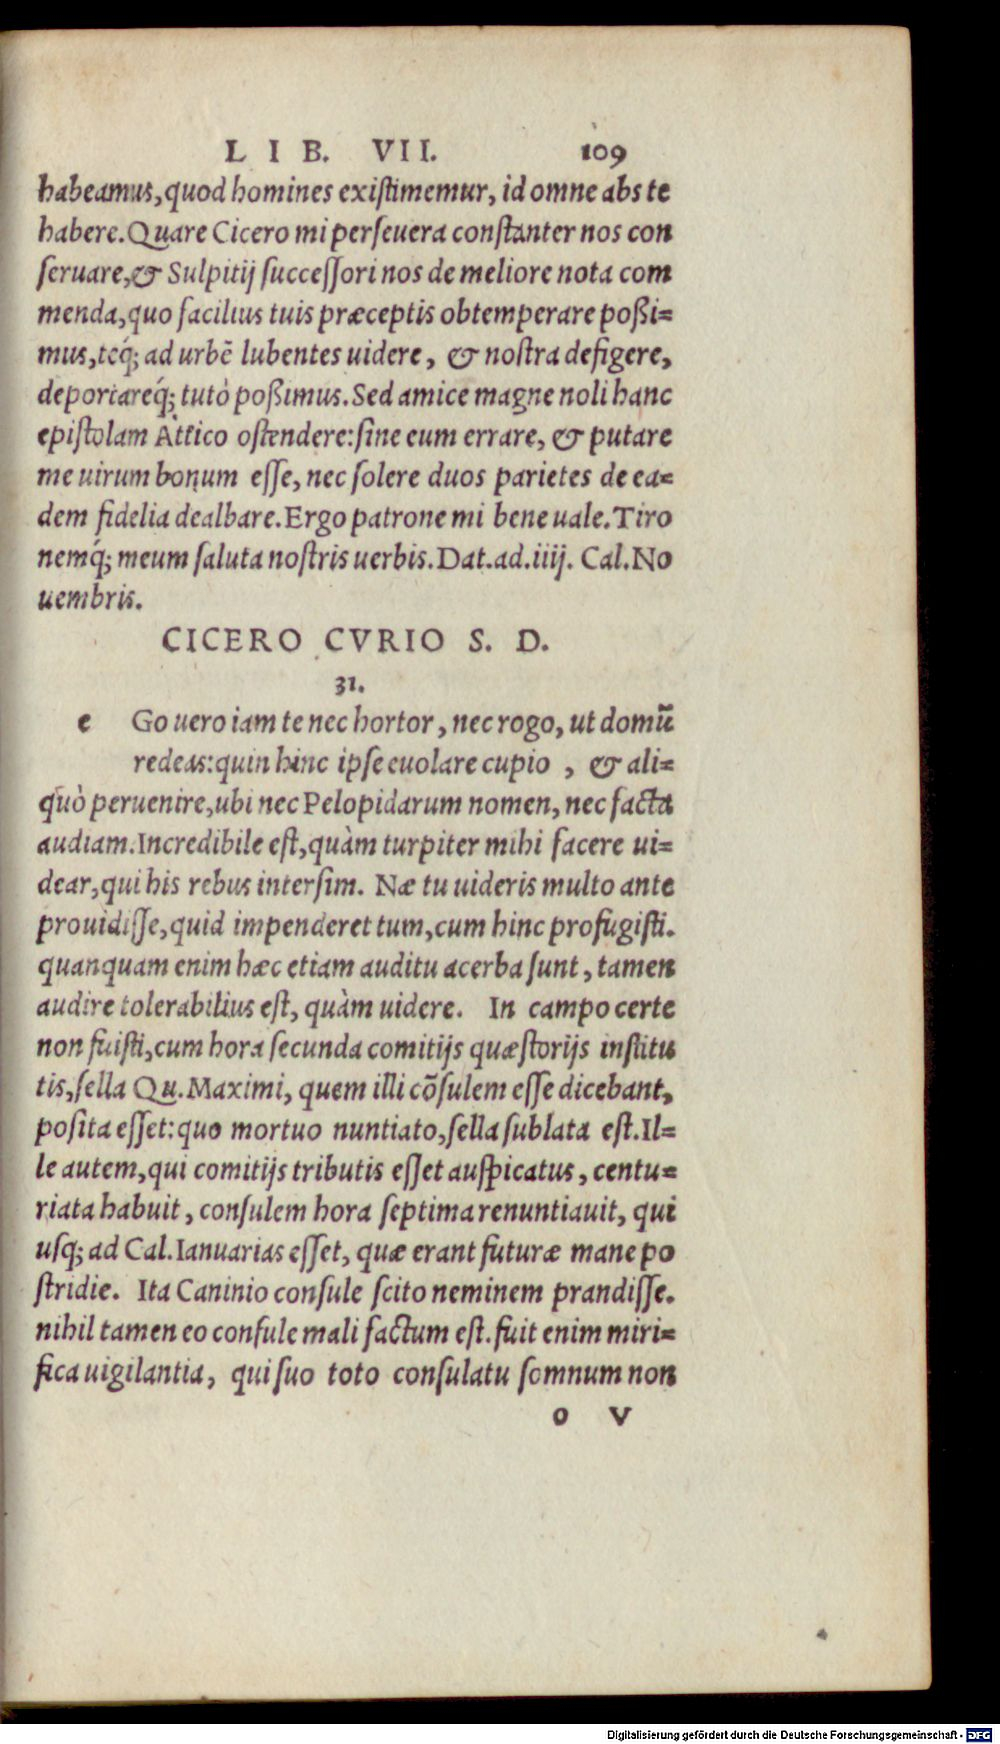 LIB. VII. 109
habeamus, quod homines existimemur, id omne abs te
habere. Quare Cicero mi perseuera constanter nos con
seruare, & Sulpitij successori nos de meliore nota com
menda, quo facilius tuis præceptis obtemperare poßi=
mus, teq́; ad urbē lubentes uidere, & nostra defigere,
deportareq́; tutò poßimus. Sed amice magne noli hanc
epistolam Attico ostendere: sine eum errare, & putare
me uirum bonum esse, nec solere duos parietes de ea=
dem fidelia dealbare. Ergo patrone mi bene uale. Tiro
nemq́; meum saluta nostris uerbis. Dat. ad. iiij. Cal. No
uembris.
CICERO CVRIO S. D.
31.
e Go uero iam te nec hortor, nec rogo, ut domū
redeas: quin hinc ipse euolare cupio, & ali=
quò peruenire, ubi nec Pelopidarum nomen, nec facta
audiam. Incredibile est, quàm turpiter mihi facere ui=
dear, qui his rebus intersim. Næ tu uideris multo ante
prouidisse, quid impenderet tum, cum hinc profugisti.
quanquam enim hæc etiam auditu acerba sunt, tamen
audire tolerabilius est, quàm uidere. In campo certe
non fuisti, cum hora secunda comitijs quæstorijs institu
tis, sella Qu. Maximi, quem illi cōsulem esse dicebant,
posita esset: quo mortuo nuntiato, sella sublata est. Il=
le autem, qui comitijs tributis esset auspicatus, centu=
riata habuit, consulem hora septima renuntiauit, qui
usq; ad Cal. Ianuarias esset, quæ erant futuræ mane po
stridie. Ita Caninio consule scito neminem prandisse.
nihil tamen eo consule mali factum est. fuit enim miri=
fica uigilantia, qui suo toto consulatu somnum non
o V
Digitalisierung gefördert durch die Deutsche Forschungsgemeinschaft - DFG